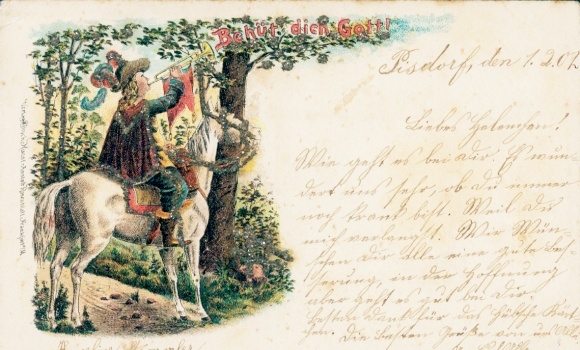 Behüt dich Gott!
Pisdorf, den 1.2.02
Liebes Helenchen!
Wie geht es bei dir. Es wun-
dert uns sehr, ob du immer
noch krank bist. Weil das
mich verlangt. Wir wün-
schen dir alle eine gute Bes-
serung, in der Hoffnung
aber geht es gut bei Dir.
Besten Dank für das hübsche Kärt-
chen. Die besten Grüße von uns Allen